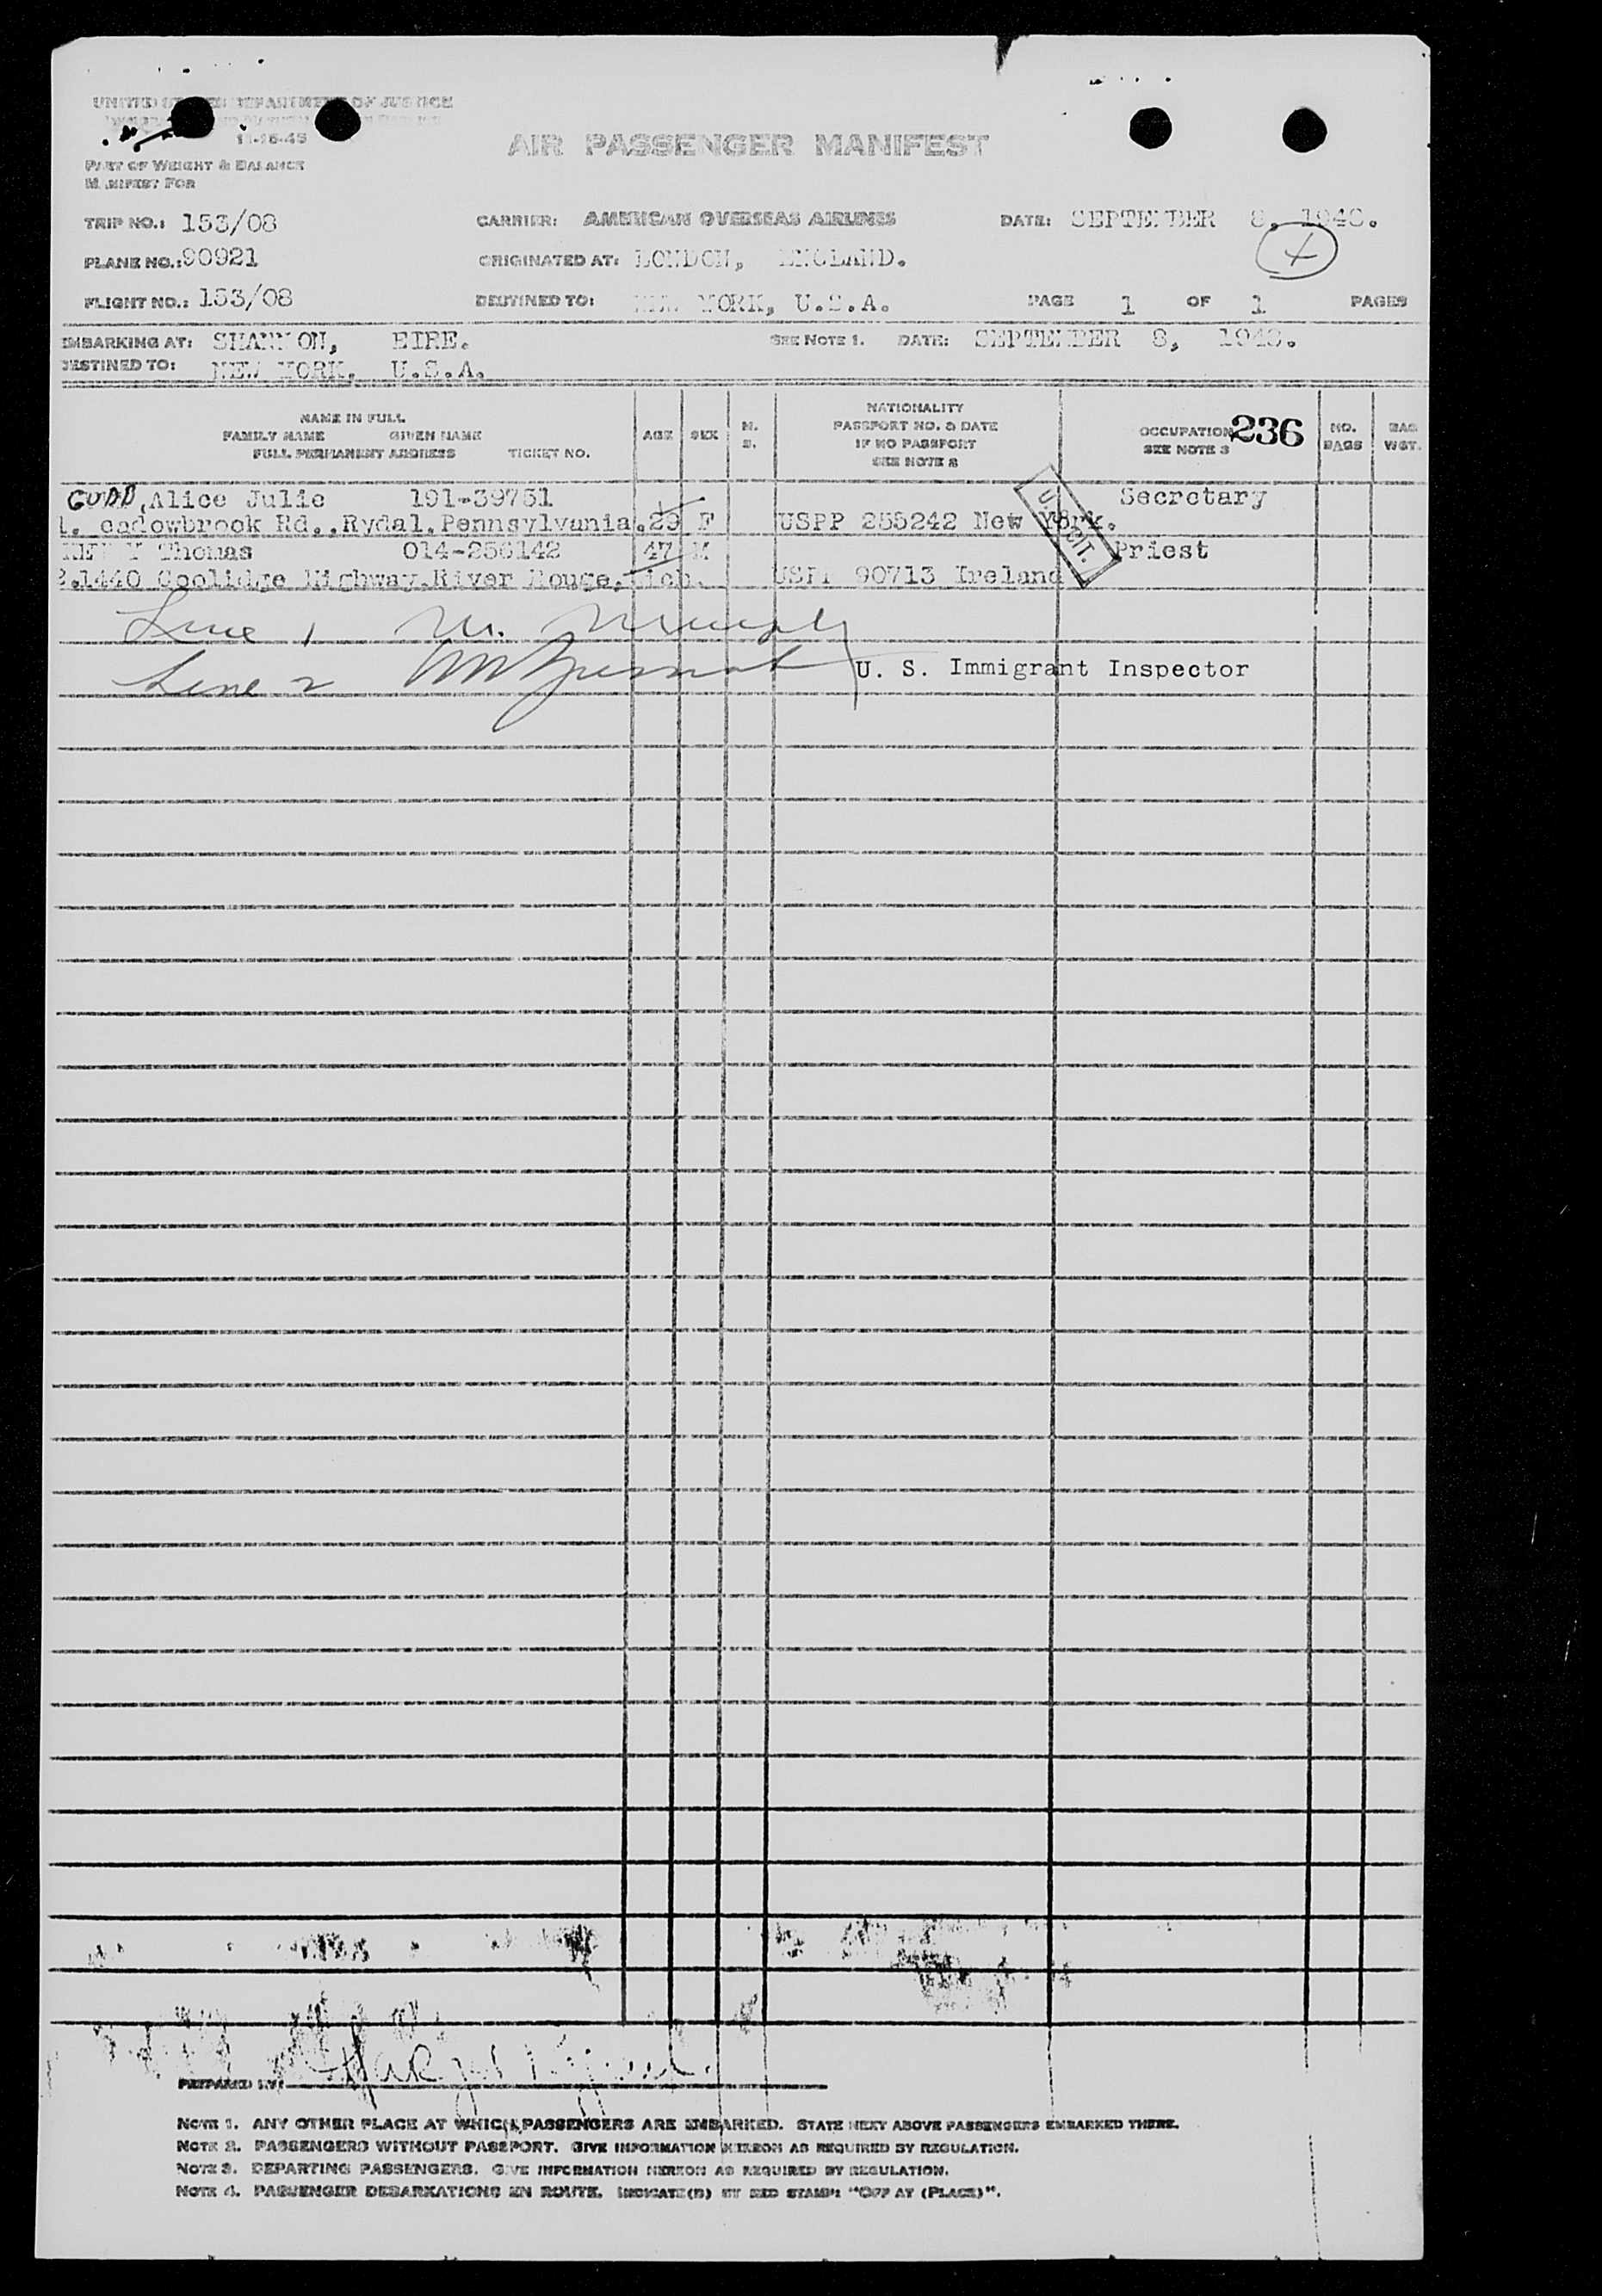 UNITED STATES DEPARTMENT OF JUSTICE
11-15-45
PART OF WEIGHT & BALANCE
MANIFEST FOR
AIR PASSENGER MANIFEST
TRIP NO.: 153/08 CARRIER: AMERICAN OVERSEAS AIRLINES DATE: SEPTEMBER 8, 1948.
PLANE NO.: 90921 ORIGINATED AT: LONDON, ENGLAND.
FLIGHT NO.: 153/08 DESTINED TO: NEW YORK, U.S.A. PAGE 1 OF 1 PAGES
EMBARKING AT: SHANNON, EIRE. SEE NOTE 1. DATE: SEPTEMBER 8, 1948.
DESTINED TO: NEW YORK, U.S.A.
NAME IN FULL
FAMILY NAME GIVEN NAME
FULL PERMANENT ADDRESS TICKET NO.
AGE SEX M. S.
NATIONALITY
PASSPORT NO. & DATE
IF NO PASSPORT
SEE NOTE 2
OCCUPATION 236
SEE NOTE 3
NO. BAGS
BAG WGT.
Alice Julie 191-39751 Secretary
1. eadowbrook Rd.,Rydal,Pennsylvania. 29 F USPP 255242 New York.
U.S. CIT.
Thomas 014-256142 47 M Priest
2.1440 Coolidge Highway,River Rouge,Mich. USPP 90713 Ireland
Line 1 M.
Line 2
U. S. Immigrant Inspector
PREPARED BY:
NOTE 1. ANY OTHER PLACE AT WHICH PASSENGERS ARE EMBARKED. STATE NEXT ABOVE PASSENGERS EMBARKED THERE.
NOTE 2. PASSENGERS WITHOUT PASSPORT. GIVE INFORMATION HEREON AS REQUIRED BY REGULATION.
NOTE 3. DEPARTING PASSENGERS. GIVE INFORMATION HEREON AS REQUIRED BY REGULATION.
NOTE 4. PASSENGER DEBARKATIONS EN ROUTE. INDICATE(D) BY RED STAMP: "OFF AT (PLACE)".